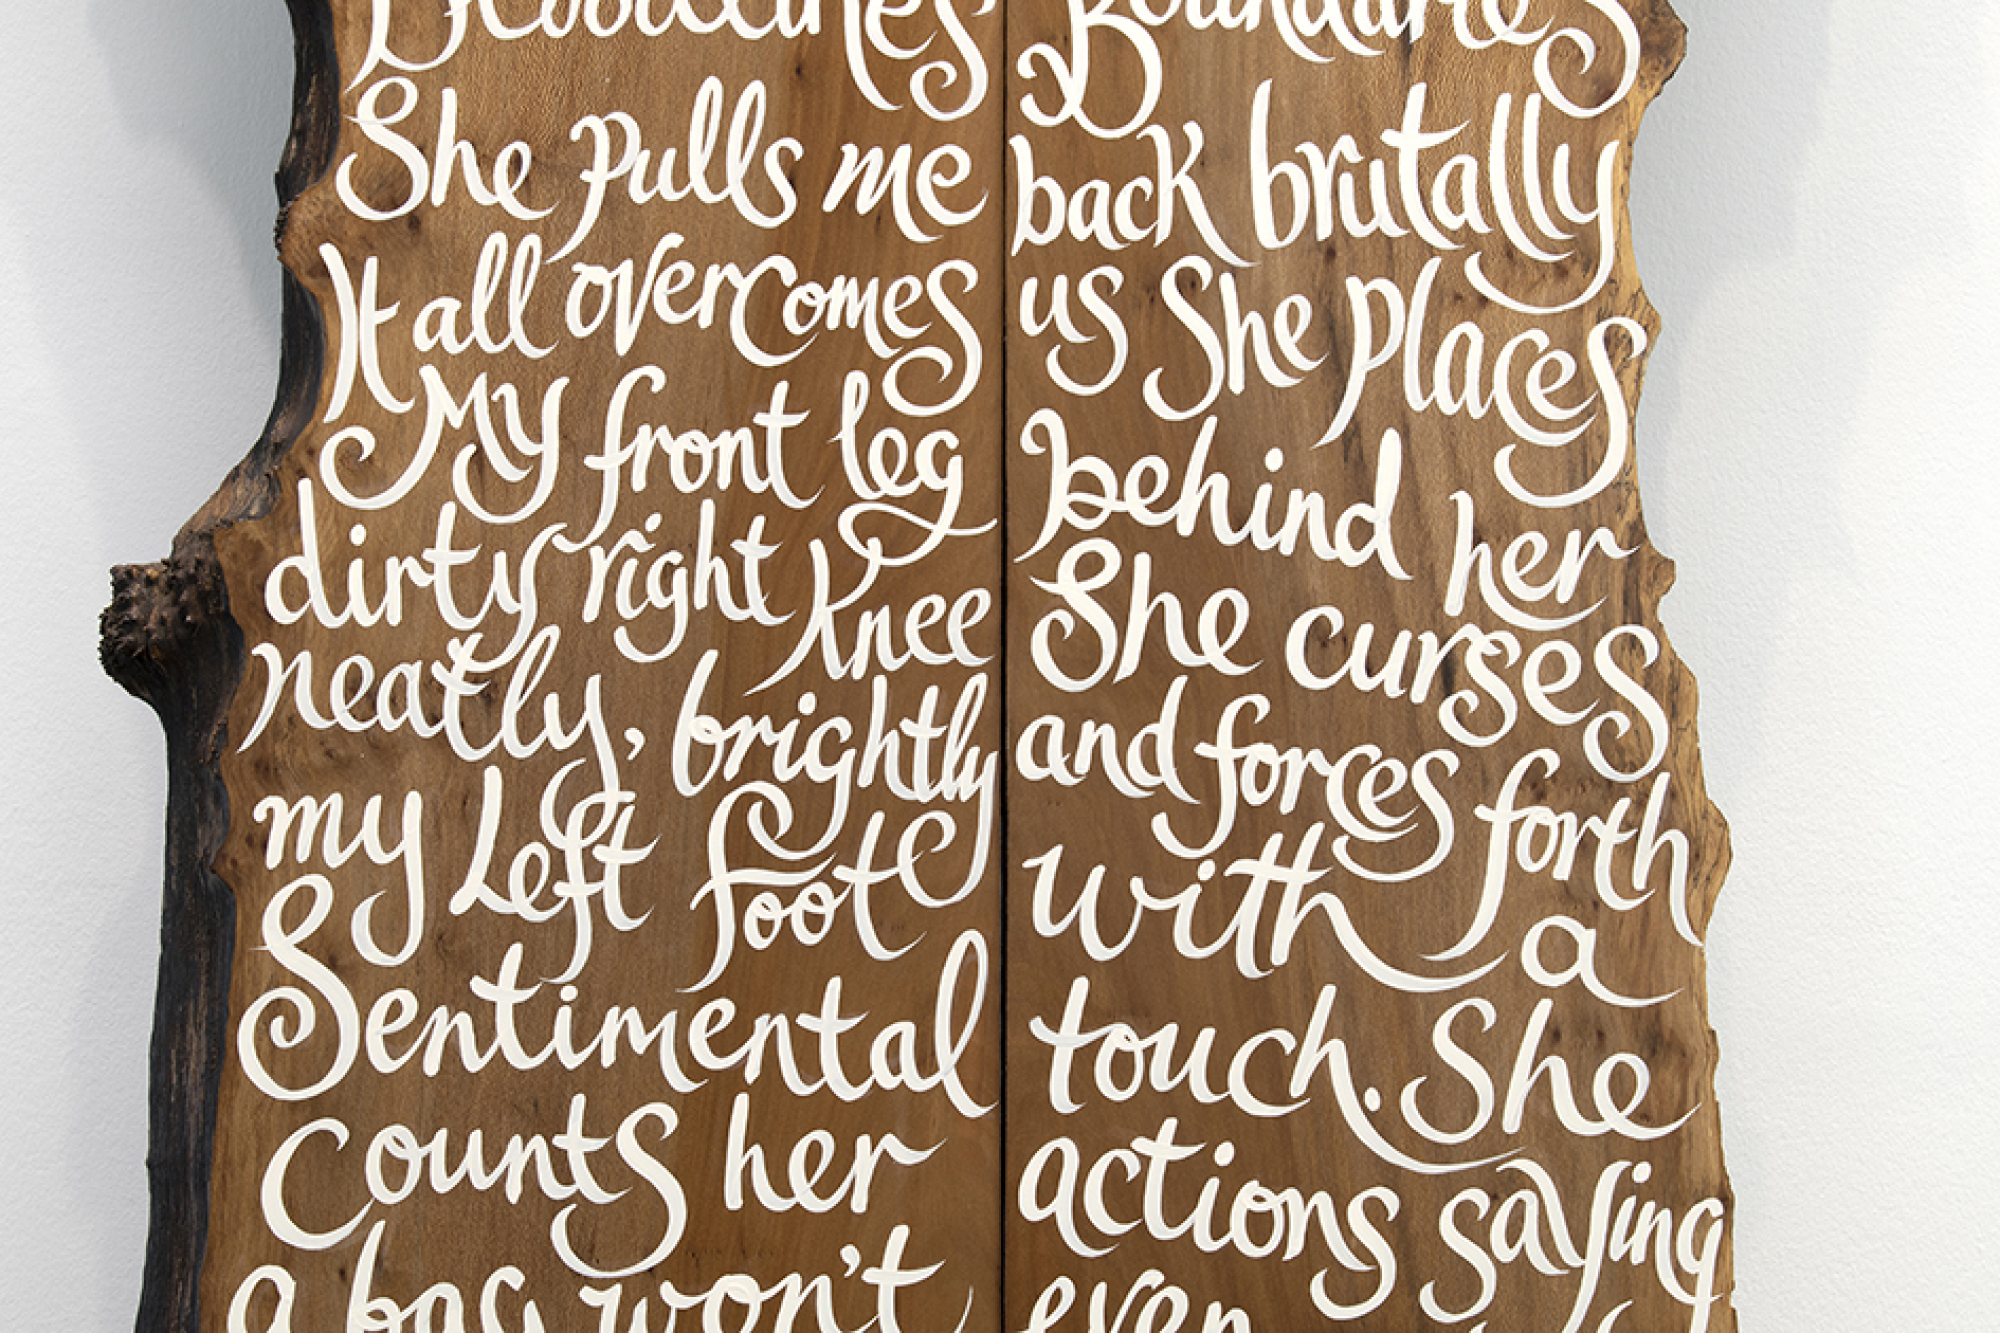 Bloodlines Boundaries
She pulls me back brutally
It all overcomes us She places
My front leg behind her
dirty right knee She curses
neatly, brightly and forces forth
my Left foot with a
Sentimental touch. She
Counts her actions saying
a bag won't even